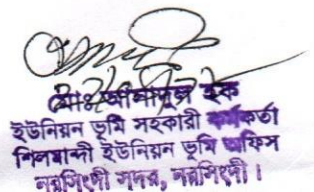 মোঃ আলাদুল হক
ইউনিয়ন ভূমি সহকারী কর্মকর্তা
শিলমান্দী ইউনিয়ন ভূমি অফিস
নরসিংদী সদর, নরসিংদী।